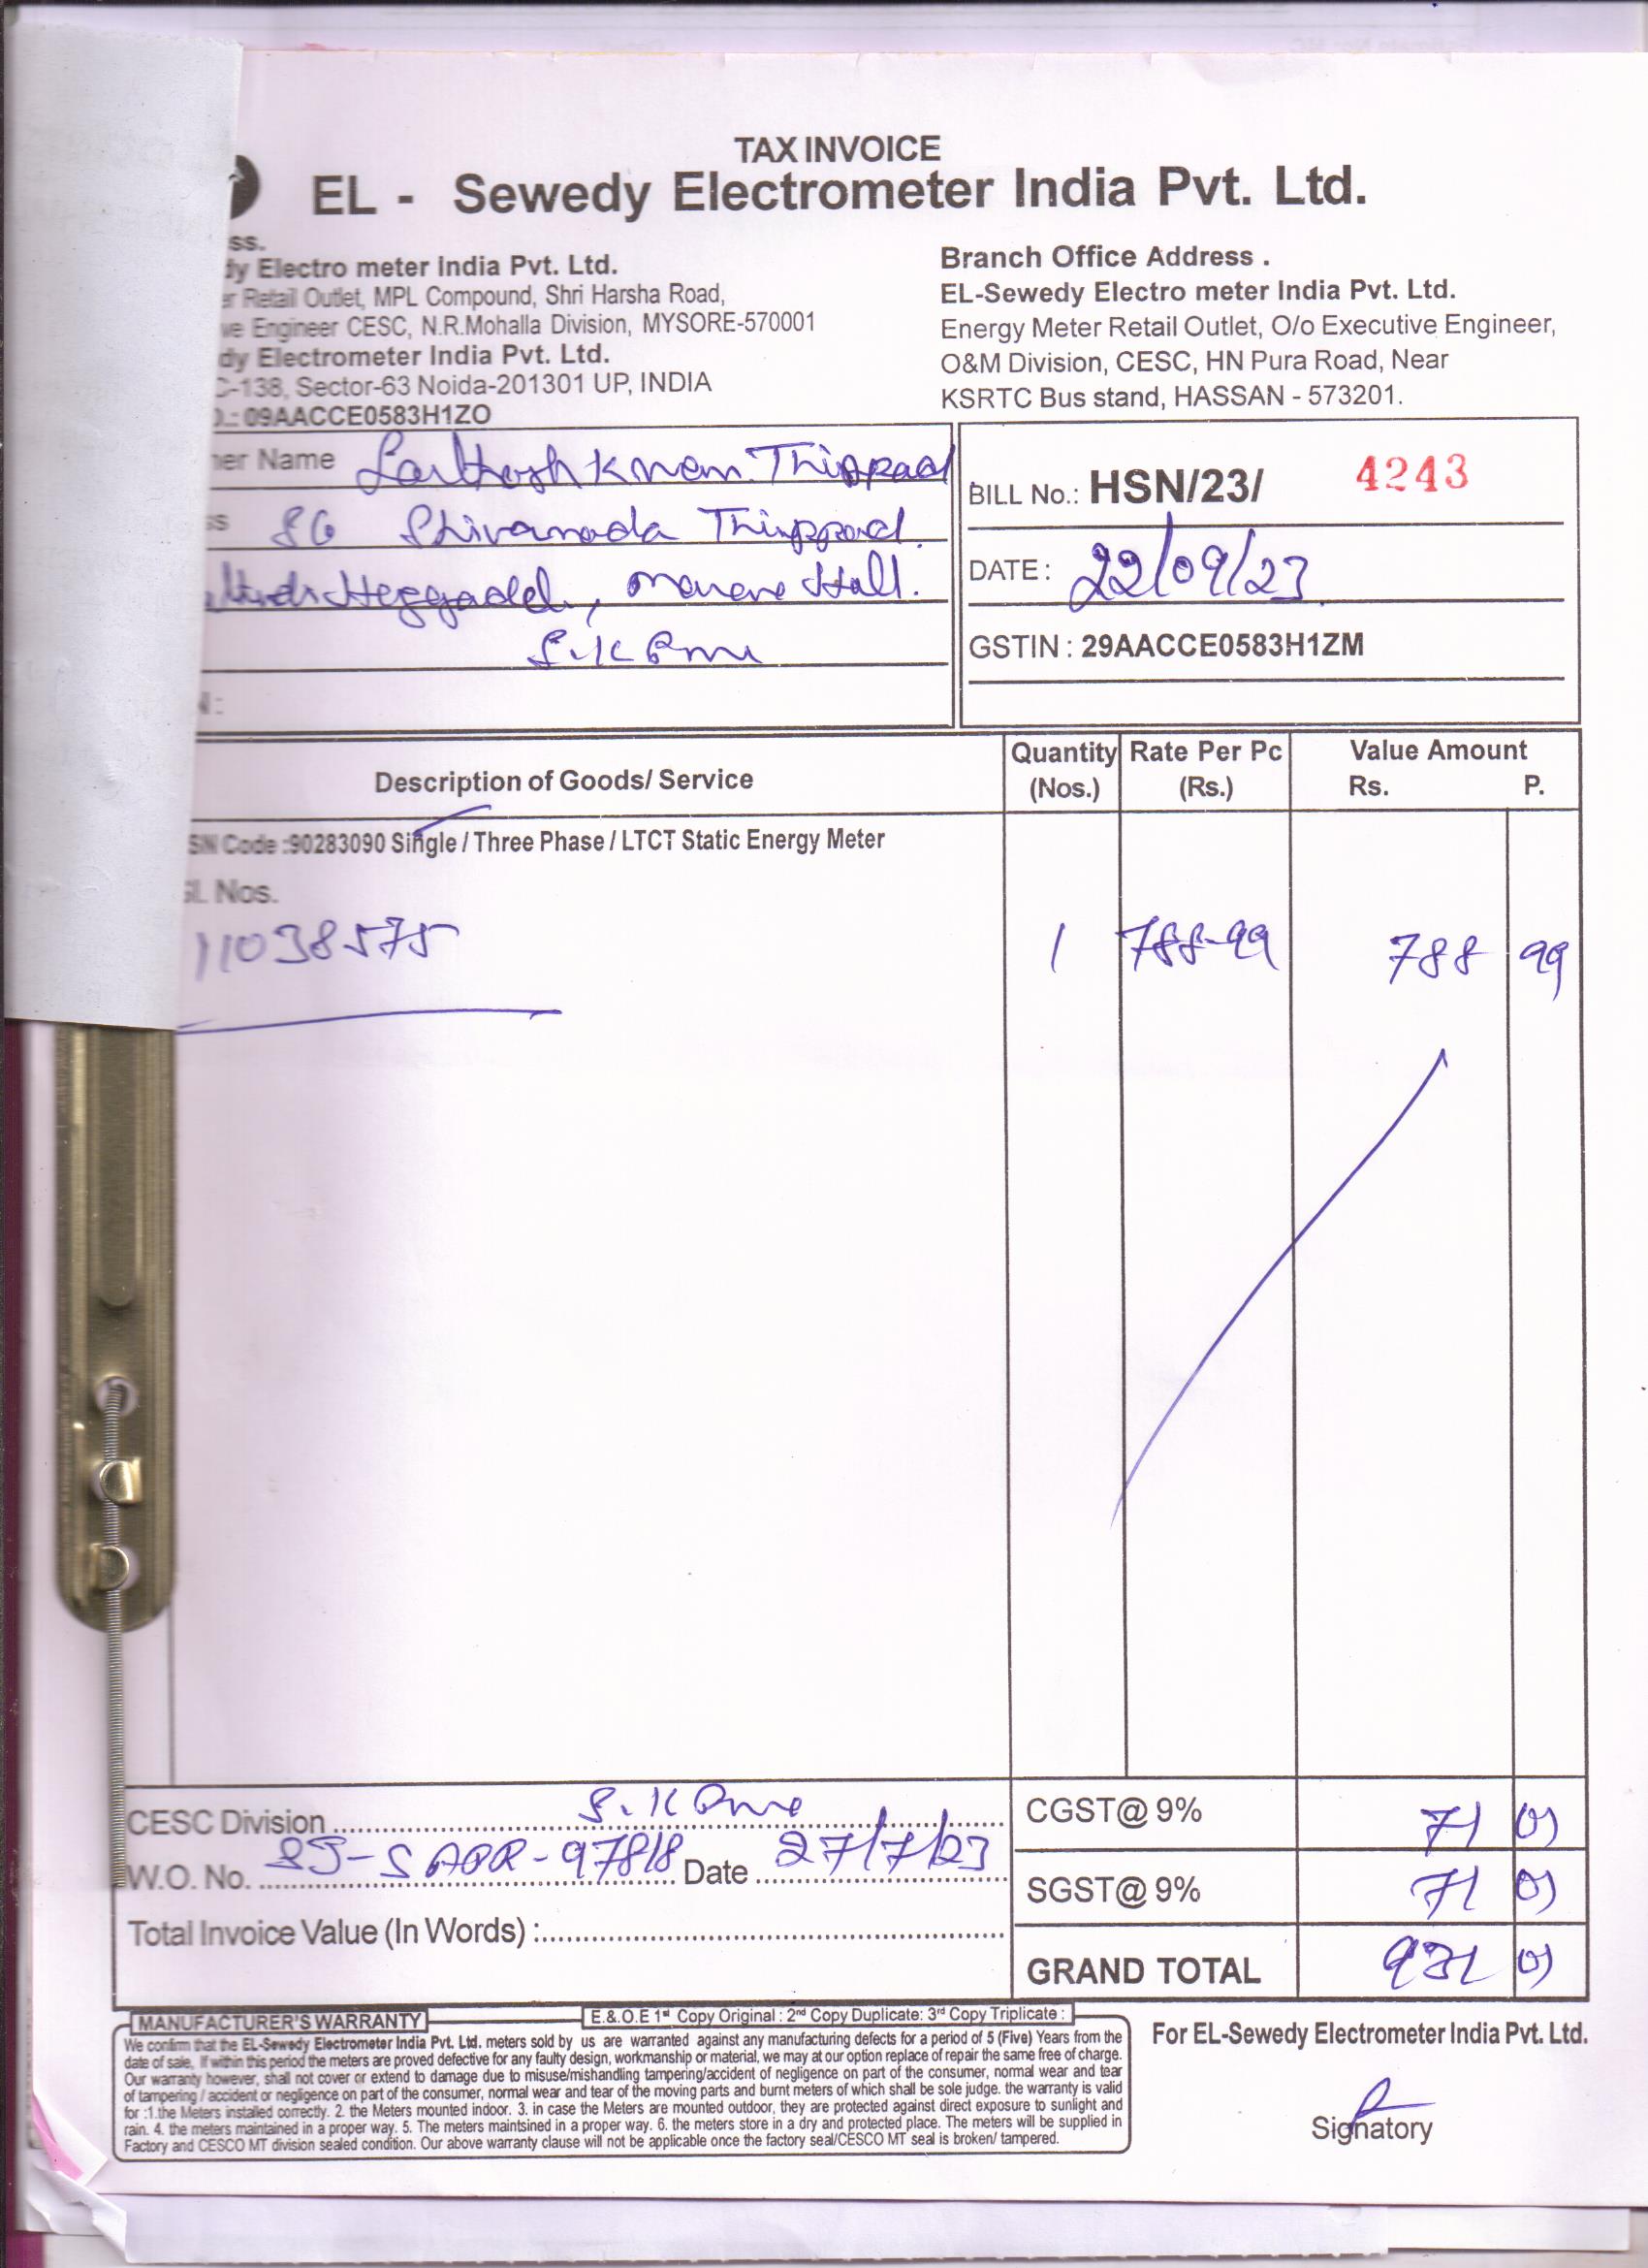 TAX INVOICE
EL - Sewedy Electrometer India Pvt. Ltd.
ss.
dy Electro meter India Pvt. Ltd.
er Retail Outlet, MPL Compound, Shri Harsha Road,
ve Engineer CESC, N.R.Mohalla Division, MYSORE-570001
dy Electrometer India Pvt. Ltd.
C-138, Sector-63 Noida-201301 UP, INDIA
.: 09AACCE0583H1ZO
Branch Office Address .
EL-Sewedy Electro meter India Pvt. Ltd.
Energy Meter Retail Outlet, O/o Executive Engineer,
O&M Division, CESC, HN Pura Road, Near
KSRTC Bus stand, HASSAN - 573201.
ner Name
Shivanada
BILL No.: HSN/23/ 4243
DATE : 22/09/23
GSTIN : 29AACCE0583H1ZM
N :
Description of Goods/ Service Quantity (Nos.) Rate Per Pc (Rs.) Value Amount Rs. P.
SN Code :90283090 Single / Three Phase / LTCT Static Energy Meter
Sl. Nos.
11038575 1 788-99 788 99
CESC Division CGST@ 9% 71 01
W.O. No. Date 27/7/23 SGST@ 9% 71 01
Total Invoice Value (In Words) :
GRAND TOTAL 931 01
MANUFACTURER'S WARRANTY E. & O.E 1st Copy Original : 2nd Copy Duplicate: 3rd Copy Triplicate :
We confirm that the EL-Sewedy Electrometer India Pvt. Ltd. meters sold by us are warranted against any manufacturing defects for a period of 5 (Five) Years from the
date of sale, If within this period the meters are proved defective for any faulty design, workmanship or material, we may at our option replace of repair the same free of charge.
Our warranty however, shall not cover or extend to damage due to misuse/mishandling tampering/accident of negligence on part of the consumer, normal wear and tear
of tampering / accident or negligence on part of the consumer, normal wear and tear of the moving parts and burnt meters of which shall be sole judge. the warranty is valid
for :1.the Meters installed correctly. 2. the Meters mounted indoor. 3. in case the Meters are mounted outdoor, they are protected against direct exposure to sunlight and
rain. 4. the meters maintained in a proper way. 5. The meters maintsined in a proper way. 6. the meters store in a dry and protected place. The meters will be supplied in
Factory and CESCO MT division sealed condition. Our above warranty clause will not be applicable once the factory seal/CESCO MT seal is broken/ tampered.
For EL-Sewedy Electrometer India Pvt. Ltd.
Signatory